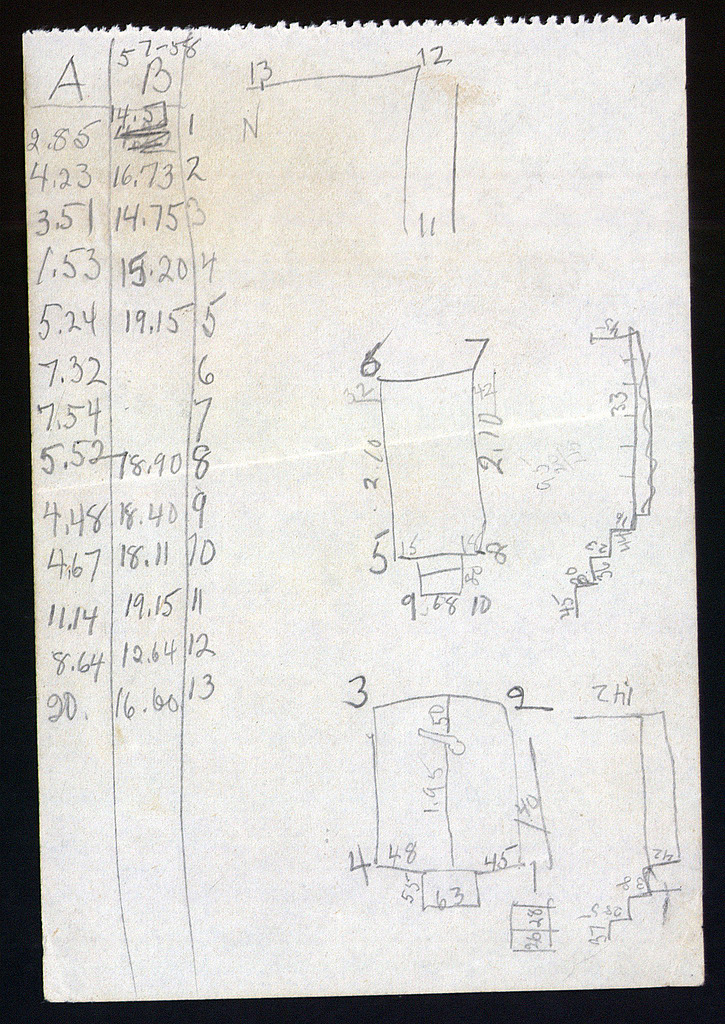 57-58
A B
2.85 14.5 1
4.23 16.73 2
3.51 14.75 3
1.53 15.20 4
5.24 19.15 5
7.32 6
7.54 7
5.52 18.90 8
4.48 18.40 9
4.67 18.11 10
11.14 19.15 11
8.64 12.64 12
20. 16.60 13
13 12
N
11
6 7
32 42
2.10 2.10
5 15 18 8
80
9 68 10
33
45
3 2
50
1.95
4 48 45 1
55 63
26 28
142
42
37